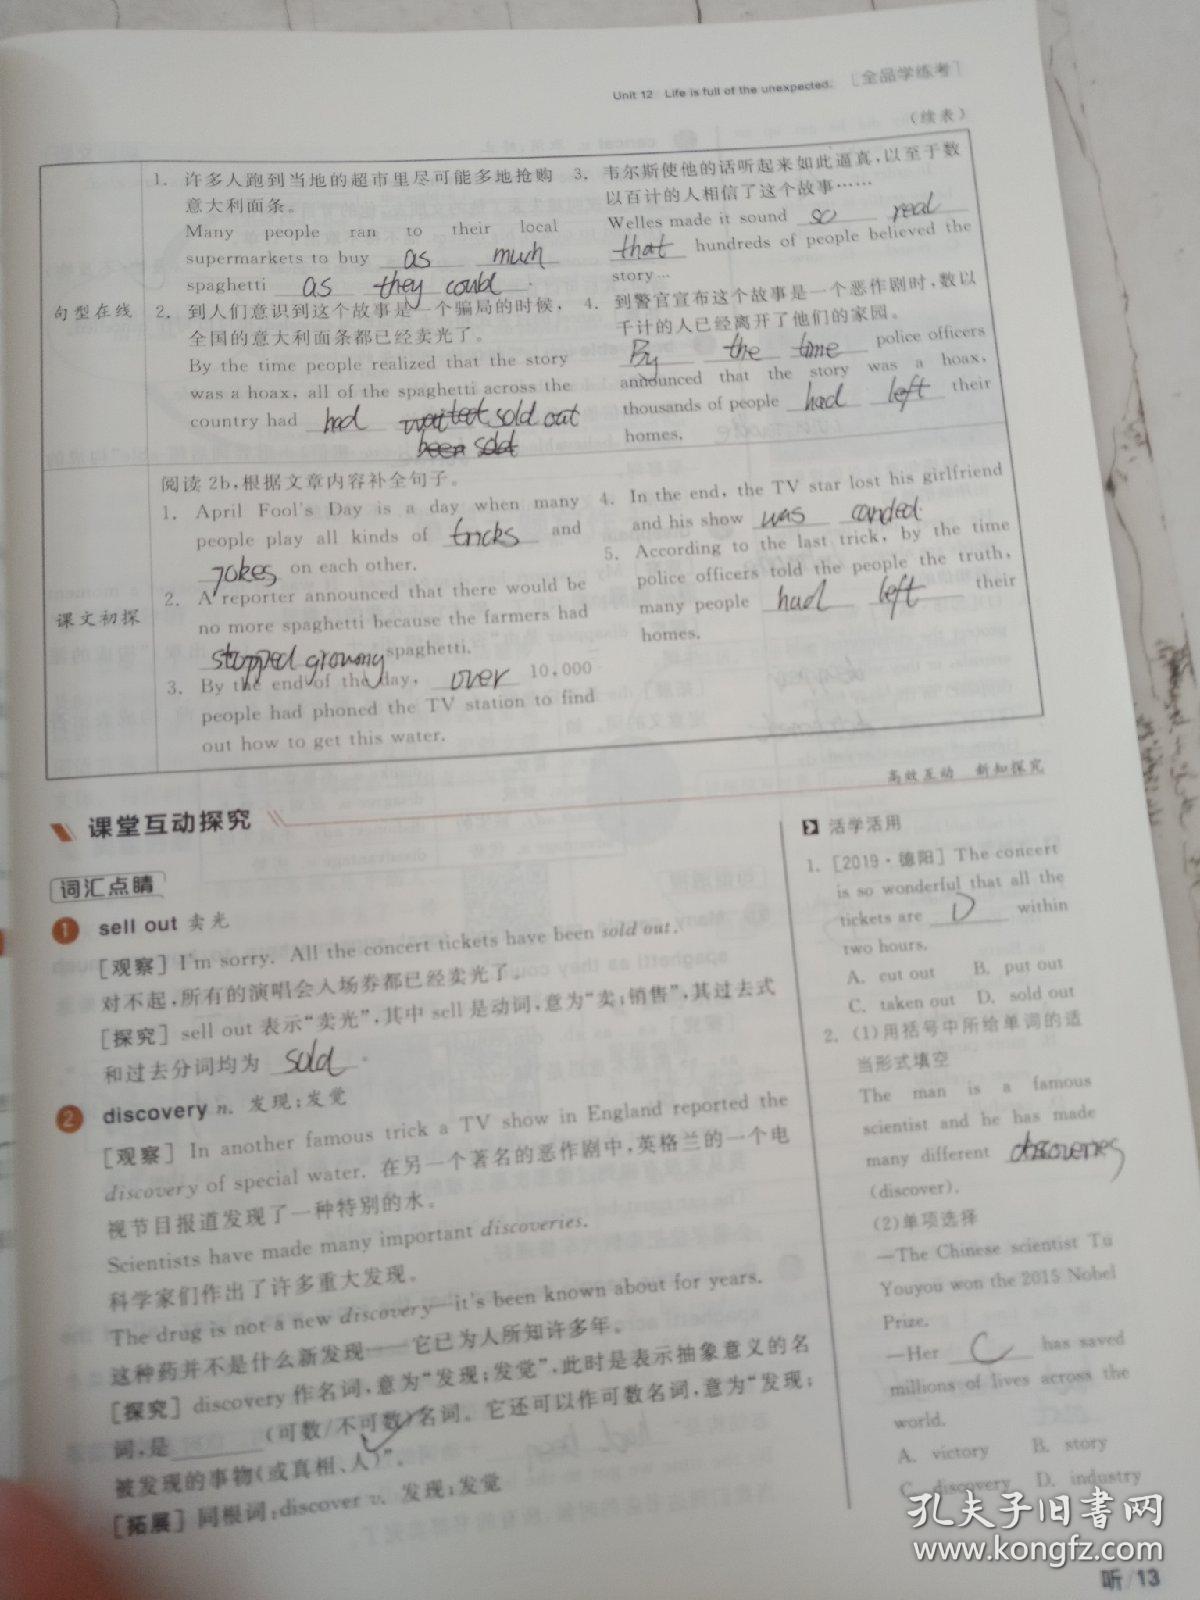 Unit 12 Life is full of the unexpected. [全品学练考]
(续表)
句型在线
1. 许多人跑到当地的超市里尽可能多地抢购
意大利面条。
Many people ran to their local
supermarkets to buy as much
spaghetti as they could.
2. 到人们意识到这个故事是一个骗局的时候,
全国的意大利面条都已经卖光了。
By the time people realized that the story
was a hoax, all of the spaghetti across the
country had had sold out
been sold
3. 韦尔斯使他的话听起来如此逼真,以至于数
以百计的人相信了这个故事……
Welles made it sound so real
that hundreds of people believed the
story…
4. 到警官宣布这个故事是一个恶作剧时,数以
千计的人已经离开了他们的家园。
By the time police officers
announced that the story was a hoax,
thousands of people had left their
homes.
课文初探
阅读 2b,根据文章内容补全句子。
1. April Fool's Day is a day when many
people play all kinds of tricks and
jokes on each other.
2. A reporter announced that there would be
no more spaghetti because the farmers had
stopped growing spaghetti.
3. By the end of the day, over 10,000
people had phoned the TV station to find
out how to get this water.
4. In the end, the TV star lost his girlfriend
and his show was canceled.
5. According to the last trick, by the time
police officers told the people the truth,
many people had left their
homes.
高效互动 新知探究
课堂互动探究
词汇点睛
1 sell out 卖光
[观察] I'm sorry. All the concert tickets have been sold out.
对不起,所有的演唱会入场券都已经卖光了。
[探究] sell out 表示“卖光”,其中 sell 是动词,意为“卖;销售”,其过去式
和过去分词均为 sold .
2 discovery n. 发现;发觉
[观察] In another famous trick a TV show in England reported the
discovery of special water. 在另一个著名的恶作剧中,英格兰的一个电
视节目报道发现了一种特别的水。
Scientists have made many important discoveries.
科学家们作出了许多重大发现。
The drug is not a new discovery—it's been known about for years.
这种药并不是什么新发现——它已为人所知许多年。
[探究] discovery 作名词,意为“发现;发觉”,此时是表示抽象意义的名
词,是 (可数/不可数)名词。它还可以作可数名词,意为“发现;
被发现的事物(或真相、人)”。
[拓展] 同根词:discover v. 发现;发觉
活学活用
1. [2019·德阳] The concert
is so wonderful that all the
tickets are D within
two hours.
A. cut out B. put out
C. taken out D. sold out
2. (1)用括号中所给单词的适
当形式填空
The man is a famous
scientist and he has made
many different discoveries
(discover).
(2)单项选择
—The Chinese scientist Tu
Youyou won the 2015 Nobel
Prize.
—Her C has saved
millions of lives across the
world.
A. victory B. story
C. discovery D. industry
孔夫子旧书网
www.kongfz.com
听/13